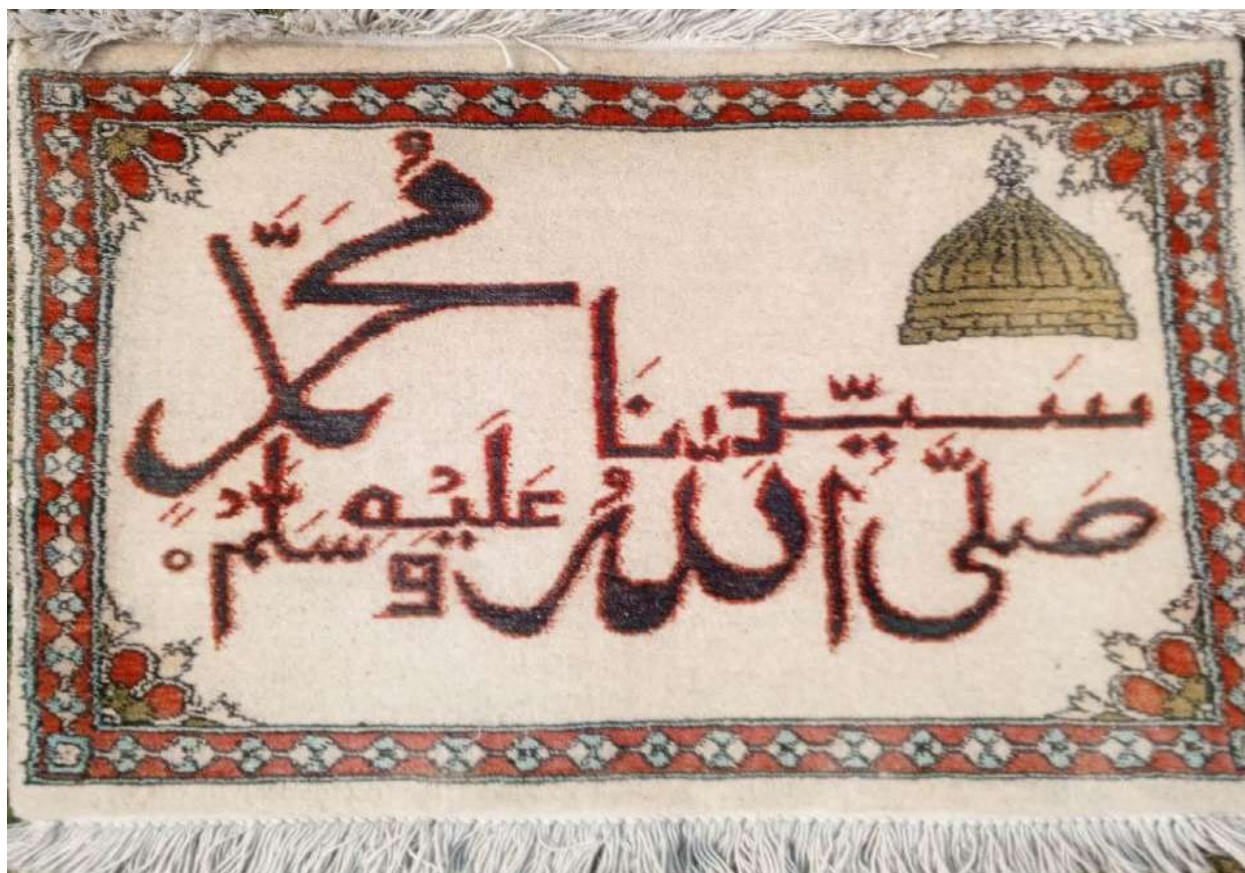 سَيِّدِنَا مُحَمَّدٍ
صَلَّى اللهُ عَلَيْهِ وَسَلَّمْ